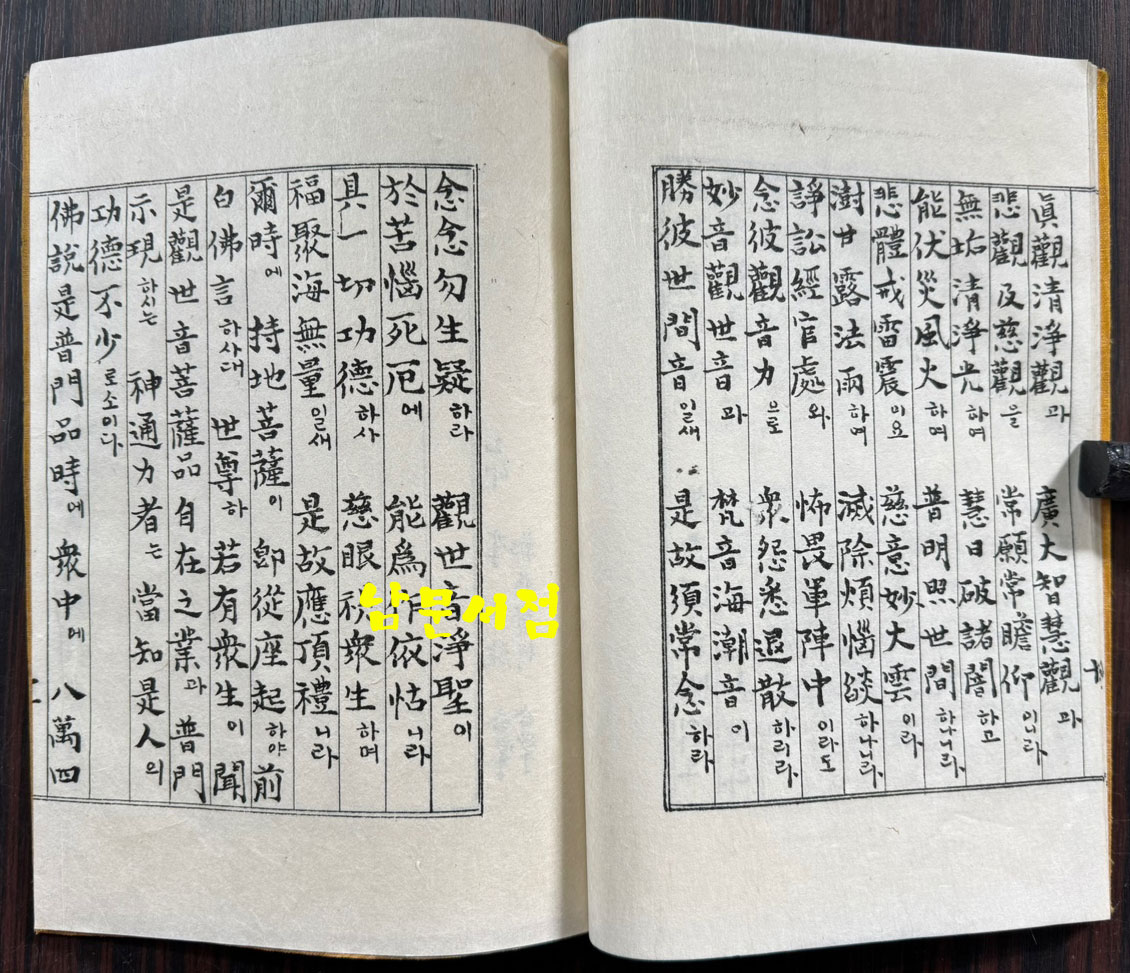 眞觀清淨觀과 廣大智慧觀과
悲觀及慈觀을 常願常瞻仰이니라
無垢清淨光하며 慧日破諸闇하고
能伏災風火하며 普明照世間하나니라
悲體戒雷震이요 慈意妙大雲이라
澍甘露法雨하며 滅除煩惱燄하나니라
諍訟經官處와 怖畏軍陣中이라도
念彼觀音力으로 衆怨悉退散하리라
妙音觀世音과 梵音海潮音이
勝彼世間音일새 是故須常念하라
念念勿生疑하라 觀世音淨聖이
於苦惱死厄에 能爲作依怙니라
具一切功德하사 慈眼視衆生하며
福聚海無量일새 是故應頂禮니라
爾時에 持地菩薩이 卽從座起하야 前
白佛言하사대 世尊하 若有衆生이 聞
是觀世音菩薩品自在之業과 普門
示現하시는 神通力者는 當知是人의
功德不少로소이다
佛說是普門品時에 衆中에 八萬四
남문서점